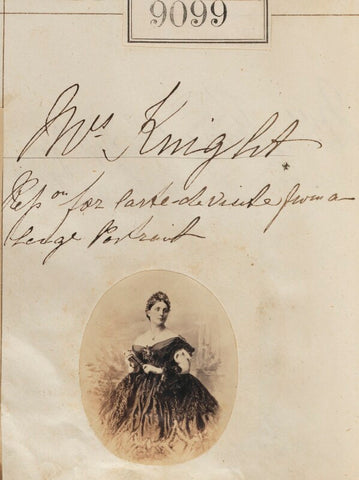 9099
Mrs Knight
Repon for Carte-de-visite from a
Large Portrait